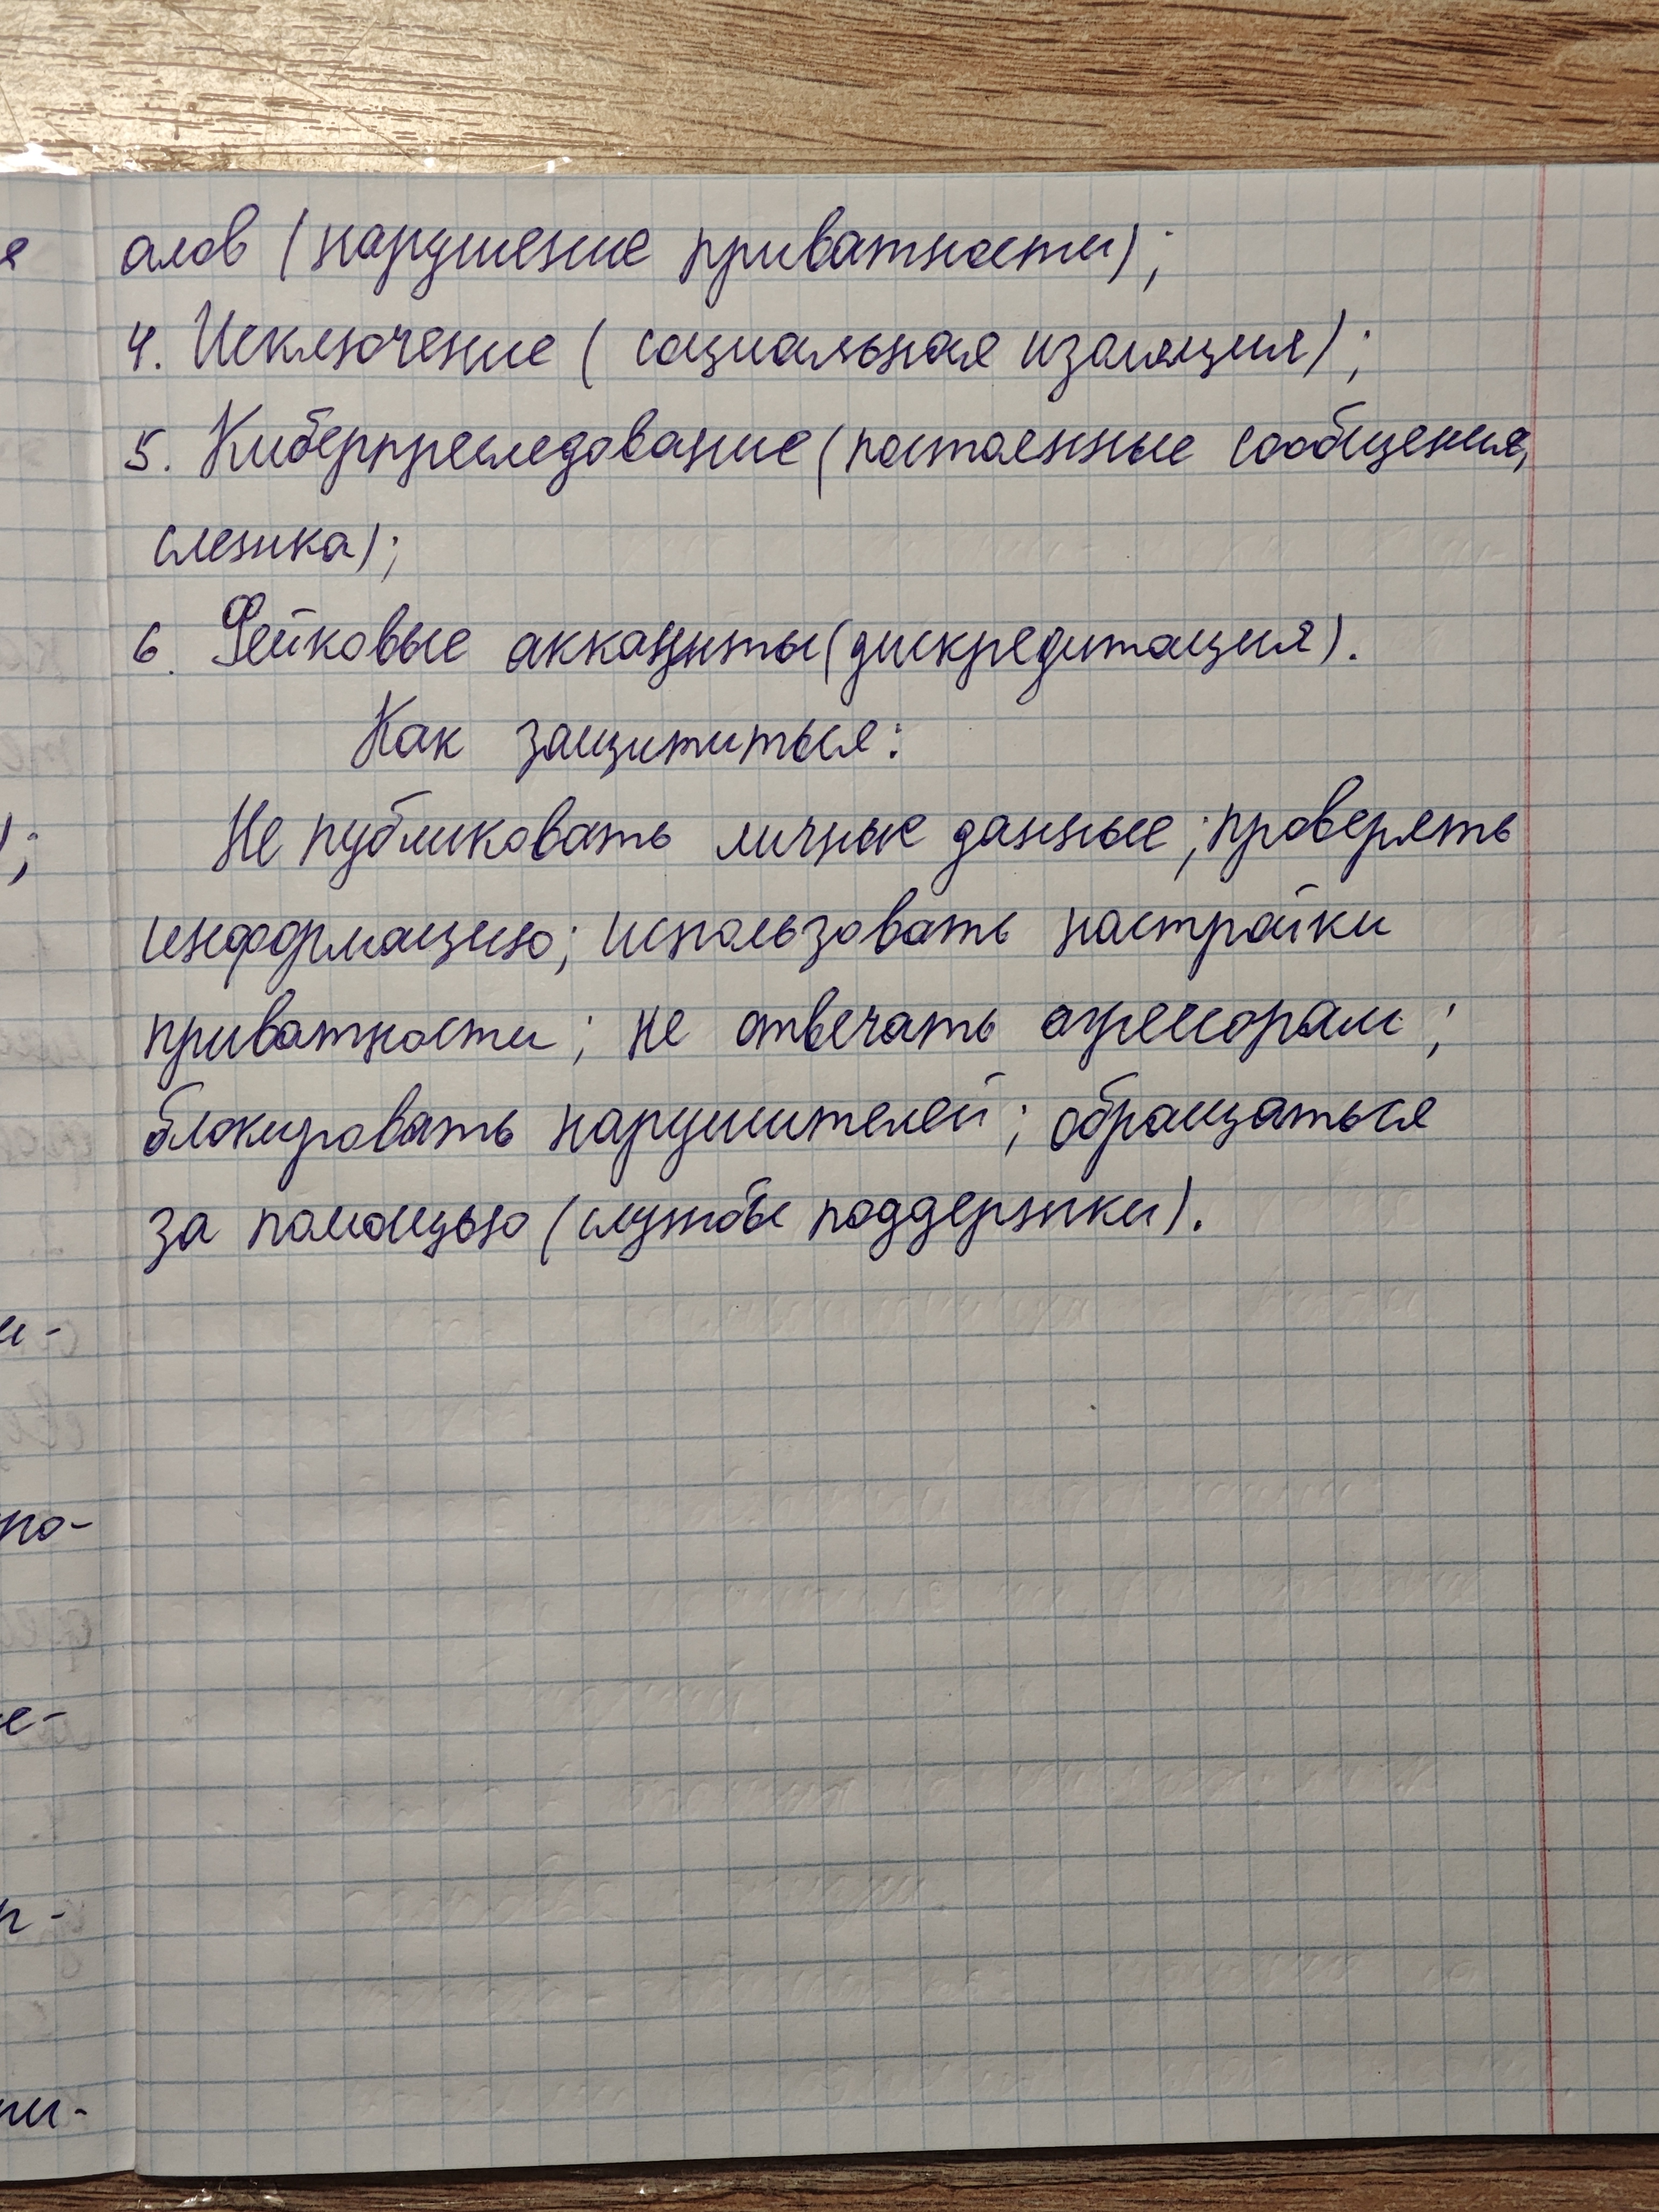 алов (нарушение приватности);
4. Исключение (социальная изоляция);
5. Киберпреследование (постоянные сообщения,
слежка);
6. Фейковые аккаунты (дискредитация).
Как защититься:
Не публиковать личные данные; проверять
информацию; использовать настройки
приватности; не отвечать агрессорам;
блокировать нарушителей; обращаться
за помощью (службы поддержки).